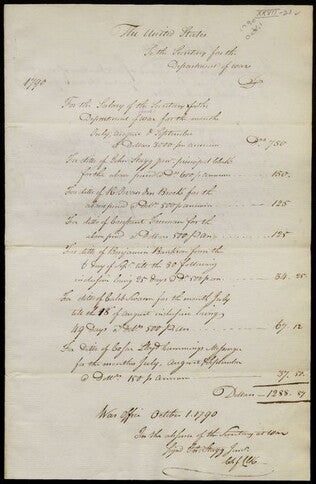 The United States
To the Secretary for the
Department of War
1790
For the Salary of the Secretary for the
Department of War for the months
July, August & September
a Dollars 3000 per annum 750
For ditto of John Stagg junr principal Clerk
for the above period a Drs 600 p annum 150.
For ditto of for the
above period a Drs 500 p annum 125
For ditto of Constant Freeman for the
above period a Dollars 500 p ann 125
For ditto of Benjamin Bankson from the
6 day of Sepr till the 30 following
inclusive being 25 days a Ds 500 p an 34. 25
For ditto of Caleb Swan for the month July
till the 18th of august inclusive being
49 days a Dollars 500 p an 67. 12
For ditto of Messenger
for the months July, August & September
a Dollrs 150 p annum 37. 50
Dollars 1288. 87
War Office October 1. 1790
In the absence of the Secretary at War
Signd Jno Stagg Junr
Chf Clk